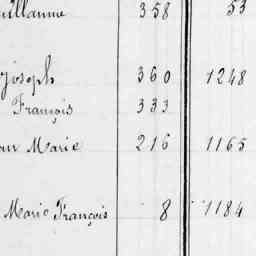 Guillaume 358 53
Joseph 360 1248
François 333
Marie 216 1165
Marie François 8 1184